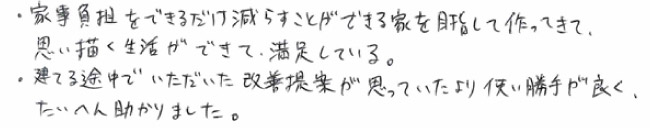 ・家事負担をできるだけ減らすことができる家を目指して作ってきて、
思い描く生活ができて、満足している。
・建てる途中でいただいた改善提案が思っていたより使い勝手が良く、
たいへん助かりました。